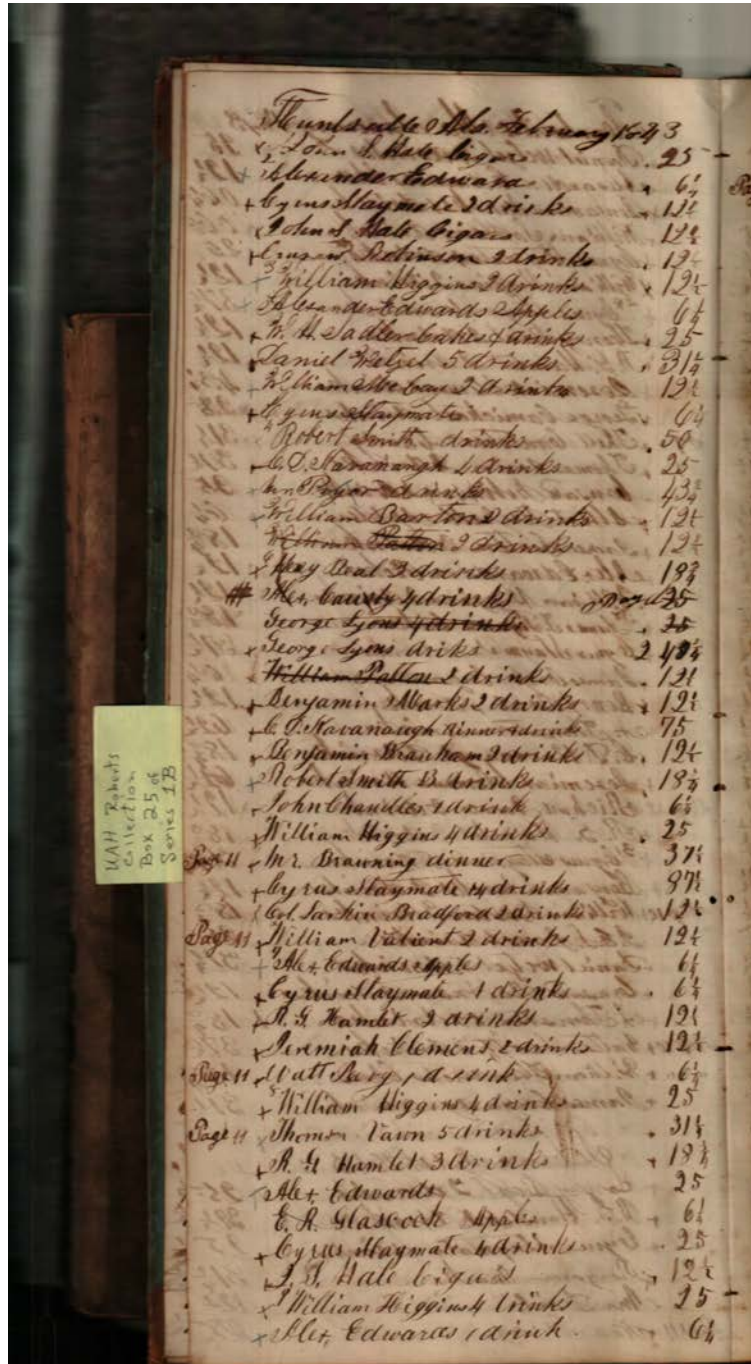 Huntsville Ala. February 1843
John S. Hale Cigars .25
Alexander Edward . 6¼
Cyrus Slaymate 2 drinks . 12½
John S Hale Cigars 12½
Robinson 2 drinks . 12½
William Higgins 2 drinks . 12½
Alexander Edwards Apples 6¼
W. H. Sadler Cakes & drinks . 25
Daniel Wetzel 5 drinks . 31¼
William 2 drinks 12½
Cyrus Slaymate 6¼
Robert Smith drinks . 50
C. D. Kavanaugh 4 drinks . 25
Mr Pryor drinks 43¾
William Barton 2 drinks . 12½
Patton 2 drinks . 12½
Beal 3 drinks . 18¾
# Alex. 4 drinks 25
George Lyons 4 drinks . 25
George Lyons driks 2
William Patton 2 drinks . 12½
Benjamin Marks 2 drinks . 12½
C. D. Kavanaugh dinner & drink 75
Benjamin Branham 2 drinks . 12½
Robert Smith 3 drinks . 18¾
John Chandler 1 drink 6¼
William Higgins 4 drinks . 25
Page 11 Mr. Browning dinner 37½
Cyrus Slaymate 14 drinks 87½
Col. Larkin Bradford 2 drinks . 12½
Page 11 William Valient 2 drinks 12½
Alex. Edwards Apples 6¼
Cyrus Slaymate 1 drink . 6¼
R. G. Hamlet 2 drinks . 12½
Jeremiah Clemens, 2 drinks . 12½
Page 11 Watt 1 drink . 6¼
William Higgins 4 drinks 25
Page 11 Thomson Vawn 5 drinks . 31¼
R. G Hamlet 3 drinks . 18¾
Alex. Edwards 25
E. R. Glascock Apples 6¼
Cyrus Slaymate 4 drinks . 25
Hale Cigars . 12½
William Higgins 4 drinks 25
Alex, Edwards 1 drink. 6¼
UAH Roberts
Collection
Box 25 of
Series 1B